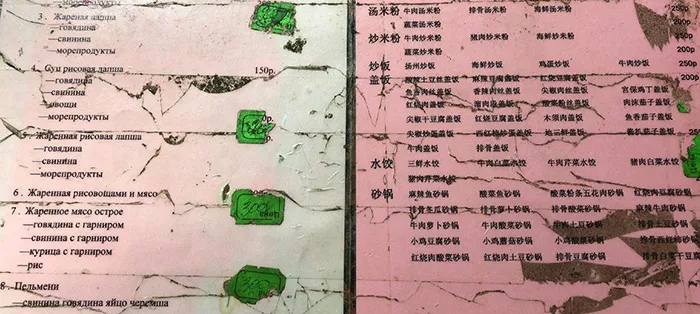 —морепродукты
3 . Жареная лапша
—говядина
—свинина
—морепродукты
4. Суп рисовая лапша 150р.
—говядина
—свинина
—овощи
—морепродукты
5. Жаренная рисовая лапша
—говядина
—свинина
—морепродукты
6 . Жаренная рисовощами и мясо
7. Жаренное мясо острое
—говядина с гарниром
—свинина с гарниром
—курица с гарниром
—рис
8 . Пельмени
—свинина говядина яйцо черемша
汤米粉 牛肉汤米粉 排骨汤米粉 海鲜汤米粉 250р
蔬菜汤米粉 200р
炒米粉 牛肉炒米粉 猪肉炒米粉 海鲜炒米粉 250р
蔬菜炒米粉 200р
炒饭 扬州炒饭 海鲜炒饭 鸡蛋炒饭 牛肉炒饭 250р
盖饭 酸辣土豆丝盖饭 麻辣豆腐盖饭 红烧豆腐盖饭
鱼香肉丝盖饭 香辣肉丝盖饭 尖椒肉丝盖饭 宫保鸡丁盖饭
红烧肉盖饭 酸菜粉丝盖饭 肉沫茄子盖饭
尖椒干豆腐盖饭 红烧豆腐盖饭 木须肉盖饭 鱼香茄子盖饭
尖椒炒蛋盖饭 西红柿炒蛋饭 地三鲜盖饭
牛肉盖饭 排骨盖饭
水饺 三鲜水饺 牛肉白菜水饺 牛肉芹菜水饺 猪肉白菜水饺
猪肉芹菜水饺
砂锅 麻辣鱼砂锅 酸菜鱼砂锅 酸菜粉条五花肉砂锅 红烧肉豆腐砂锅
排骨冬瓜砂锅 排骨萝卜砂锅 排骨酸菜砂锅 麻辣牛肉砂锅
牛肉萝卜砂锅 牛肉酸菜砂锅 牛肉土豆砂锅 排骨土豆砂锅
小鸡豆腐砂锅 小鸡蘑菇砂锅 小鸡酸菜砂锅 排骨西红柿砂锅
红烧肉酸菜砂锅 红烧肉土豆砂锅 排骨豆腐砂锅 排骨白菜干豆腐